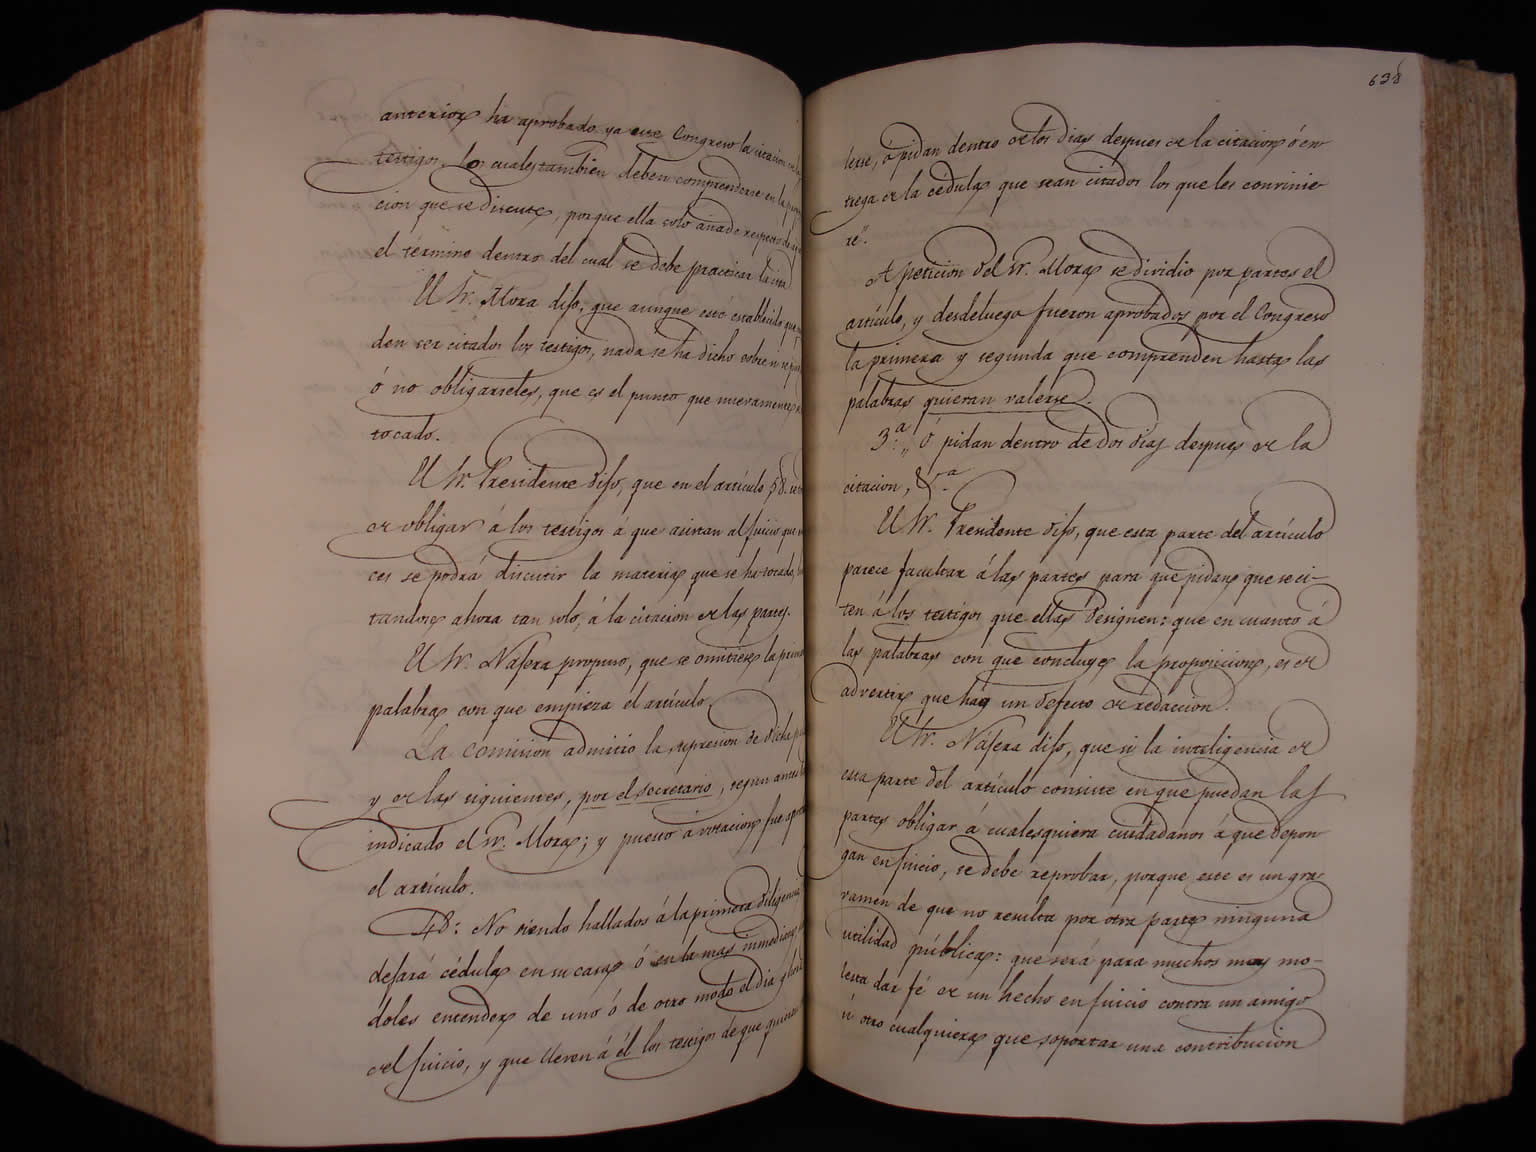 anterior ha aprobado ya este Congreso la citacion de los
testigos, los cuales tambien deben comprenderse en la propo
cion que se discute, porque ella solo añade respecto de
el término dentro del cual se debe practicar la cita
El Sr. Mora dijo, que aunque esté establecido que
den ser citados los testigos, nada se ha dicho sobre si se
ó no obligarseles, que es el punto que nuevamente
tocado.
El Sr. Presidente dijo, que en el artículo 58. se
de obligar á los testigos á que asistan al juicio que
ces se podrá discutir la materia que se ha tocado,
tandose ahora tan solo, á la citacion de las partes.
El Sr. Nájera propuso, que se omitiese la prim
palabra con que empieza el artículo.
La comision admitió la supresion de dicha
y de las siguientes, por el secretario, segun antes
indicado el Sr. Mora; y puesto á votacion fue apro
el artículo.
48: No siendo hallados á la primera diligencia
dejará cédula en su casa ó en la mas inmediata
doles entender de uno ó de otro modo el dia y hora
del juicio, y que lleven á él los testigos de que quieran
638
lerse, ó pidan dentro de los dias despues de la citacion ó en
trega de la cedula que sean citados los que les convinie
re".
A peticion del Sr. Mora se dividió por partes el
artículo, y desdeluego fueron aprobados por el Congreso
la primera y segunda que comprenden hasta las
palabras quieran valerse.
3.ª „ ó pidan dentro de dos dias despues de la
citacion, &.ª
El Sr. Presidente dijo, que esta parte del artículo
parece facultar á las partes para que pidan que se ci-
ten á los testigos que ellas designen: que en cuanto á
las palabras con que concluye la proposicion, es de
advertir que hay un defecto de redaccion.
El Sr. Nájera dijo, que si la inteligencia de
esta parte del artículo consiste en que puedan las
partes obligar á cualesquiera ciudadanos á que depon
gan en juicio, se debe reprobar, porque este es un gra-
vamen de que no resulta por otra parte ninguna
utilidad pública: que será para muchos mas mo-
lesta dar fé de un hecho en juicio contra un amigo
ú otro cualquiera que soportar una contribucion